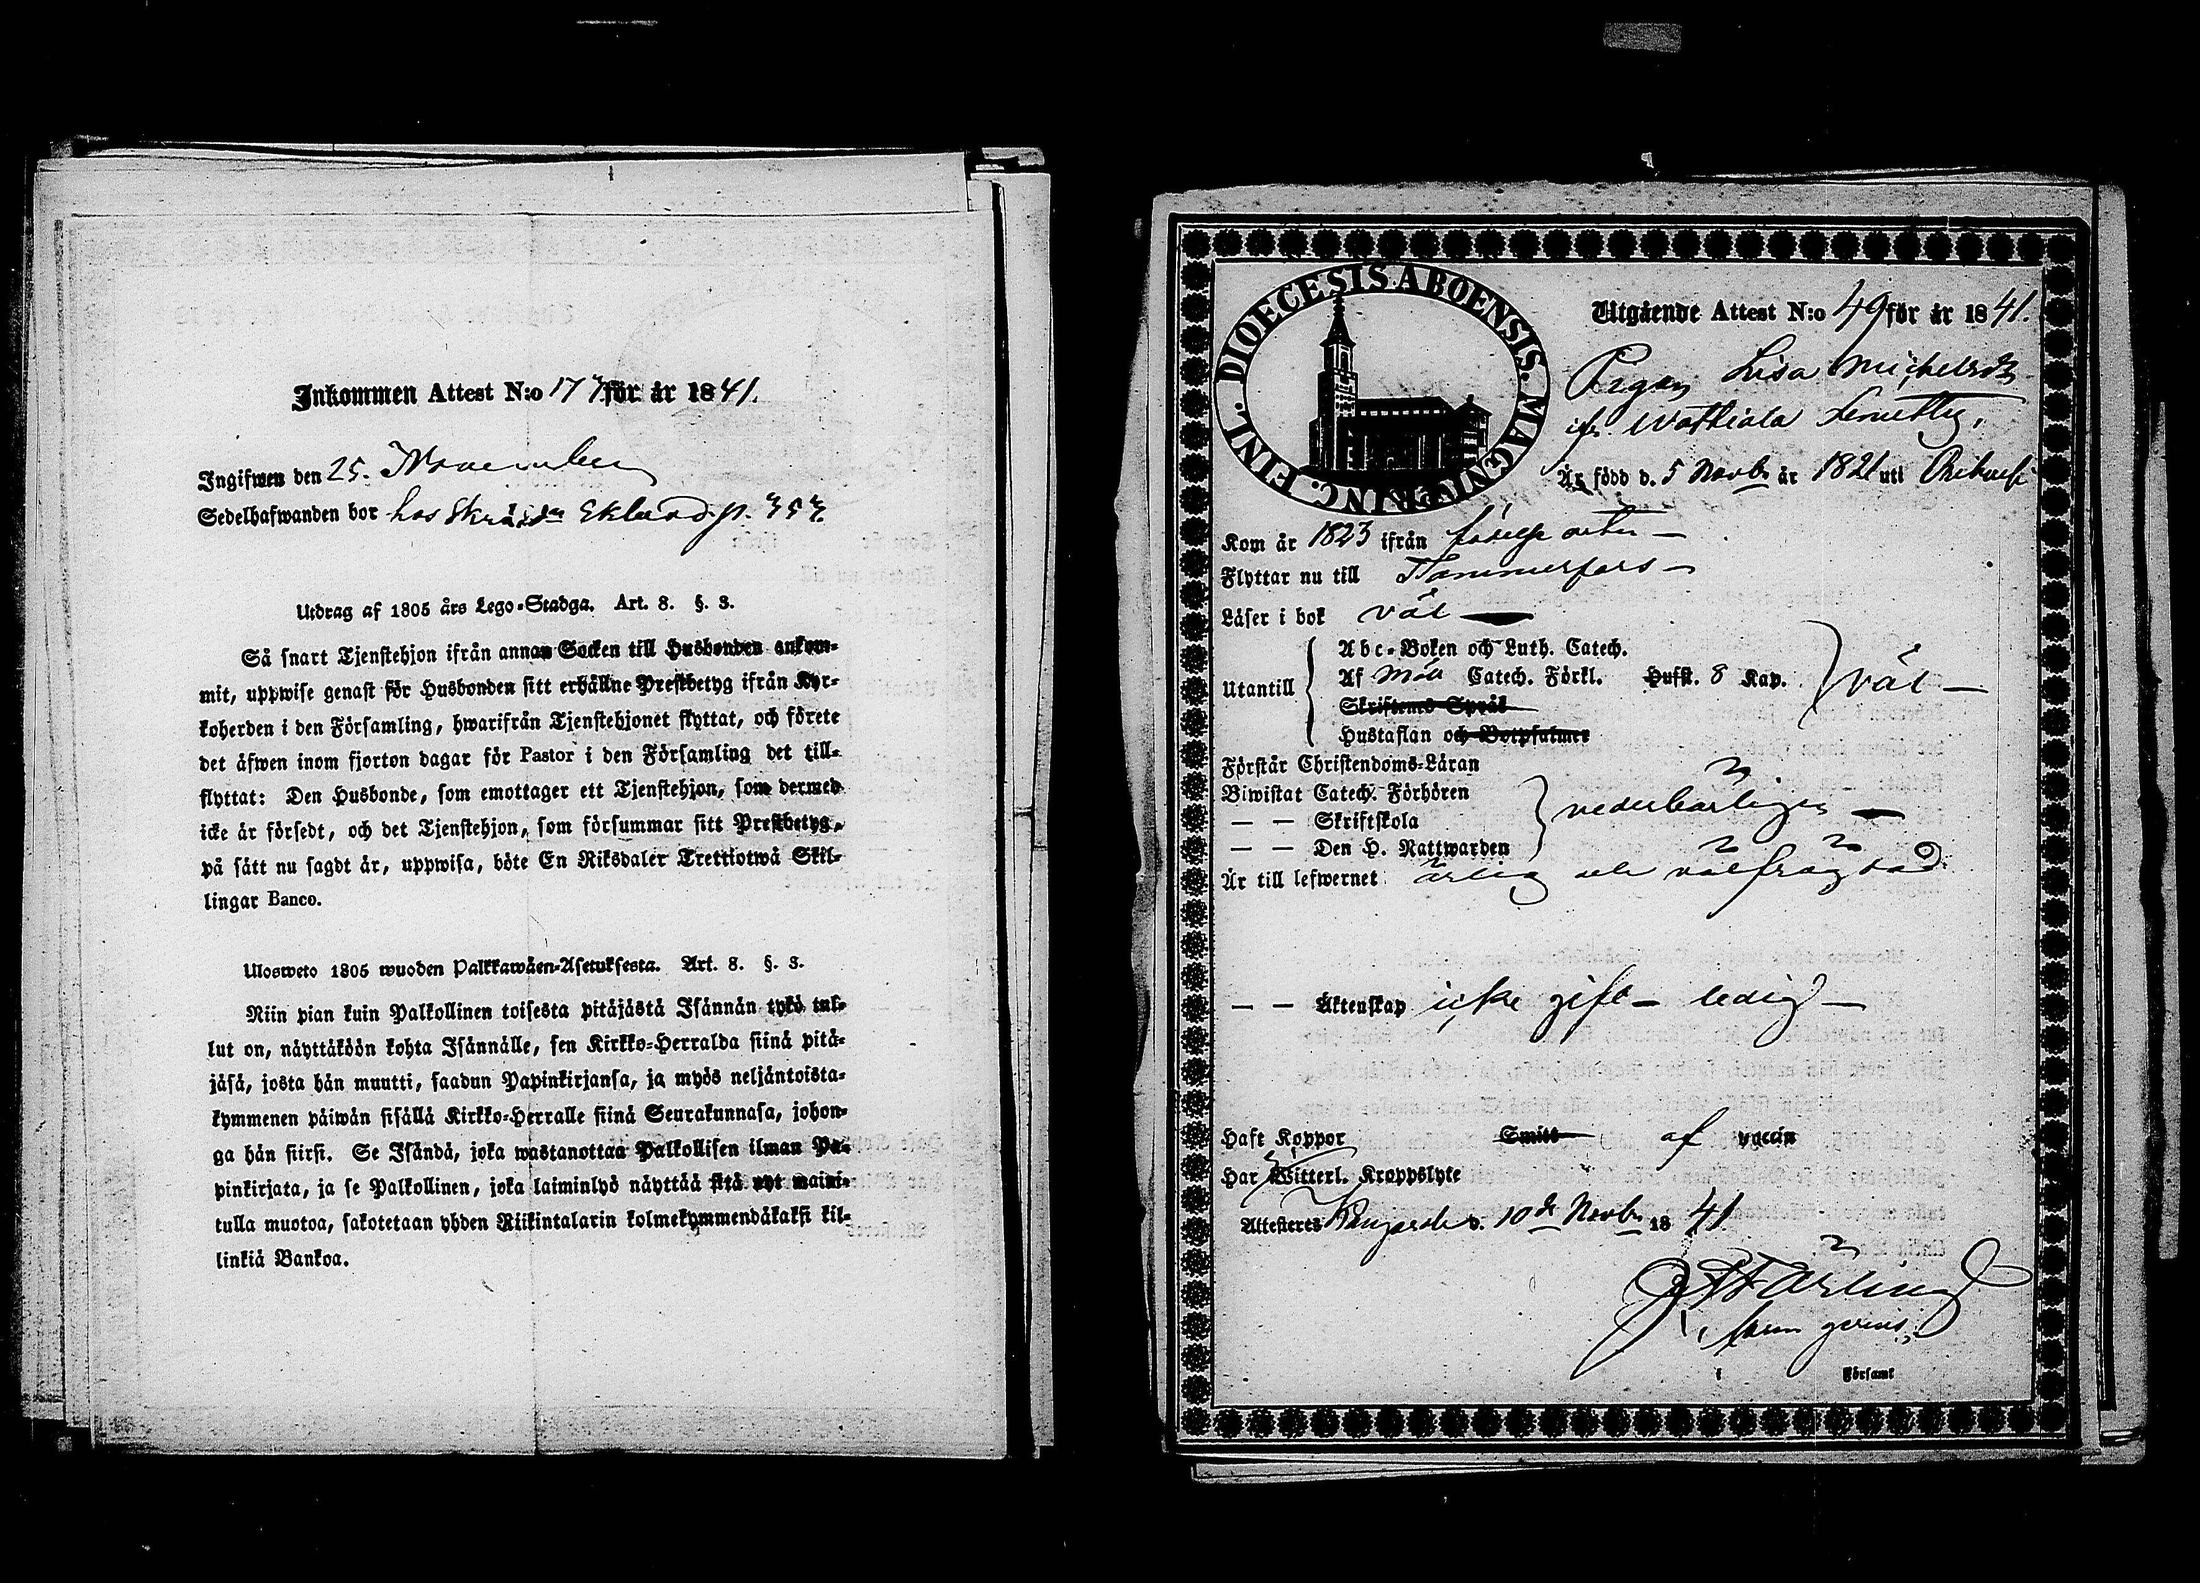 Inkommen Attest N:o 177 för år 1841.
Ingifwen den 25. November
Sedelhafwanden bor hos Skräd:n Eklund p. 353.
Utdrag af 1805 års Lego-Stadga. Art. 8. §. 3.
Så snart Tjenstehjon ifrån annan Socken till Husbonden ankom-
mit, uppwise genast för Husbonden sitt erhållne Prestbetyg ifrån Kyr-
koherden i den Församling, hwarifrån Tjenstehjonet flyttat, och förete
det äfwen inom fjorton dagar för Pastor i den Församling det till-
flyttat: Den Husbonde, som emottager ett Tjenstehjon, som dermed
icke är försedt, och det Tjenstehjon, som försummar sitt Prestbetyg,
på sätt nu sagdt är, uppwisa, böte En Riksdaler Trettiotwå Skil-
lingar Banco.
Ulosweto 1805 wuoden Palkkawäen-Asetuksesta. Art. 8. §. 3.
Niin pian kuin Palkollinen toisesta pitäjästä Isännän tykö tul-
lut on, näyttäköön kohta Isännälle, sen Kirkko-Herralda siinä pitä-
jäsä, josta hän muutti, saadun Papinkirjansa, ja myös neljäntoista-
kymmenen päiwän sisällä Kirkko-Herralle siinä Seurakunnasa, johon-
ga hän siirsi. Se Isändä, joka wastanottaa Palkollisen ilman Pa-
pinkirjata, ja se Palkollinen, joka laiminlyö näyttää sitä nyt maini-
tulla muotoa, sakotetaan yhden Riikintalarin kolmekymmendäkaksi kil-
linkiä Bankoa.
DIOECESIS ABOENSIS. MAGNI PRINC. FINL.
Utgående Attest N:o 49 för år 1841.
Pigan Lisa Michelsdr
ifr Watkiala
Är född d. 5 Novbr år 1821 uti
Kom år 1823 ifrån födelse orten
Flyttar nu till Tammerfors
Läser i bok väl
Utantill
Abc-Boken och Luth. Catech.
Af Möll Catech. Förkl. Hufst. 8 Kap. väl
Skriftens Språk
Hustaflan och Botpsalmer
Förstår Christendoms-Läran
Biwistat Catech. Förhören
— — Skriftskola nederbörligen
— — Den H. Nattwarden
Är till lefwernet ärlig och välfrägdad
— — Äktenskap icke gift - ledig
Haft Koppor Smitt af vaccin
Har Witterl. Kroppslyte
Attesteras Kangasala d. 10de Novbr 1841.
i Församl